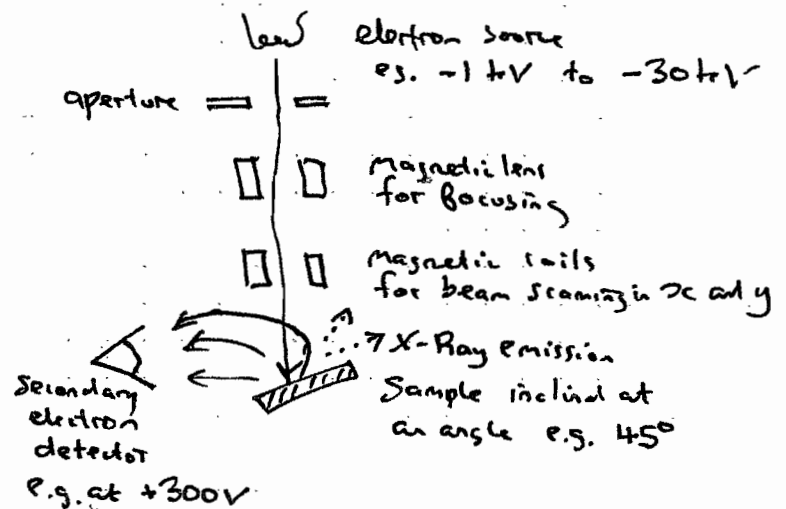 electron source
eg. -1 keV to -30 keV
aperture
Magnetic lens
for focusing
Magnetic coils
for beam scanning in x and y
X-Ray emission
Sample inclined at
an angle e.g. 45°
Secondary
electron
detector
e.g. at +300V